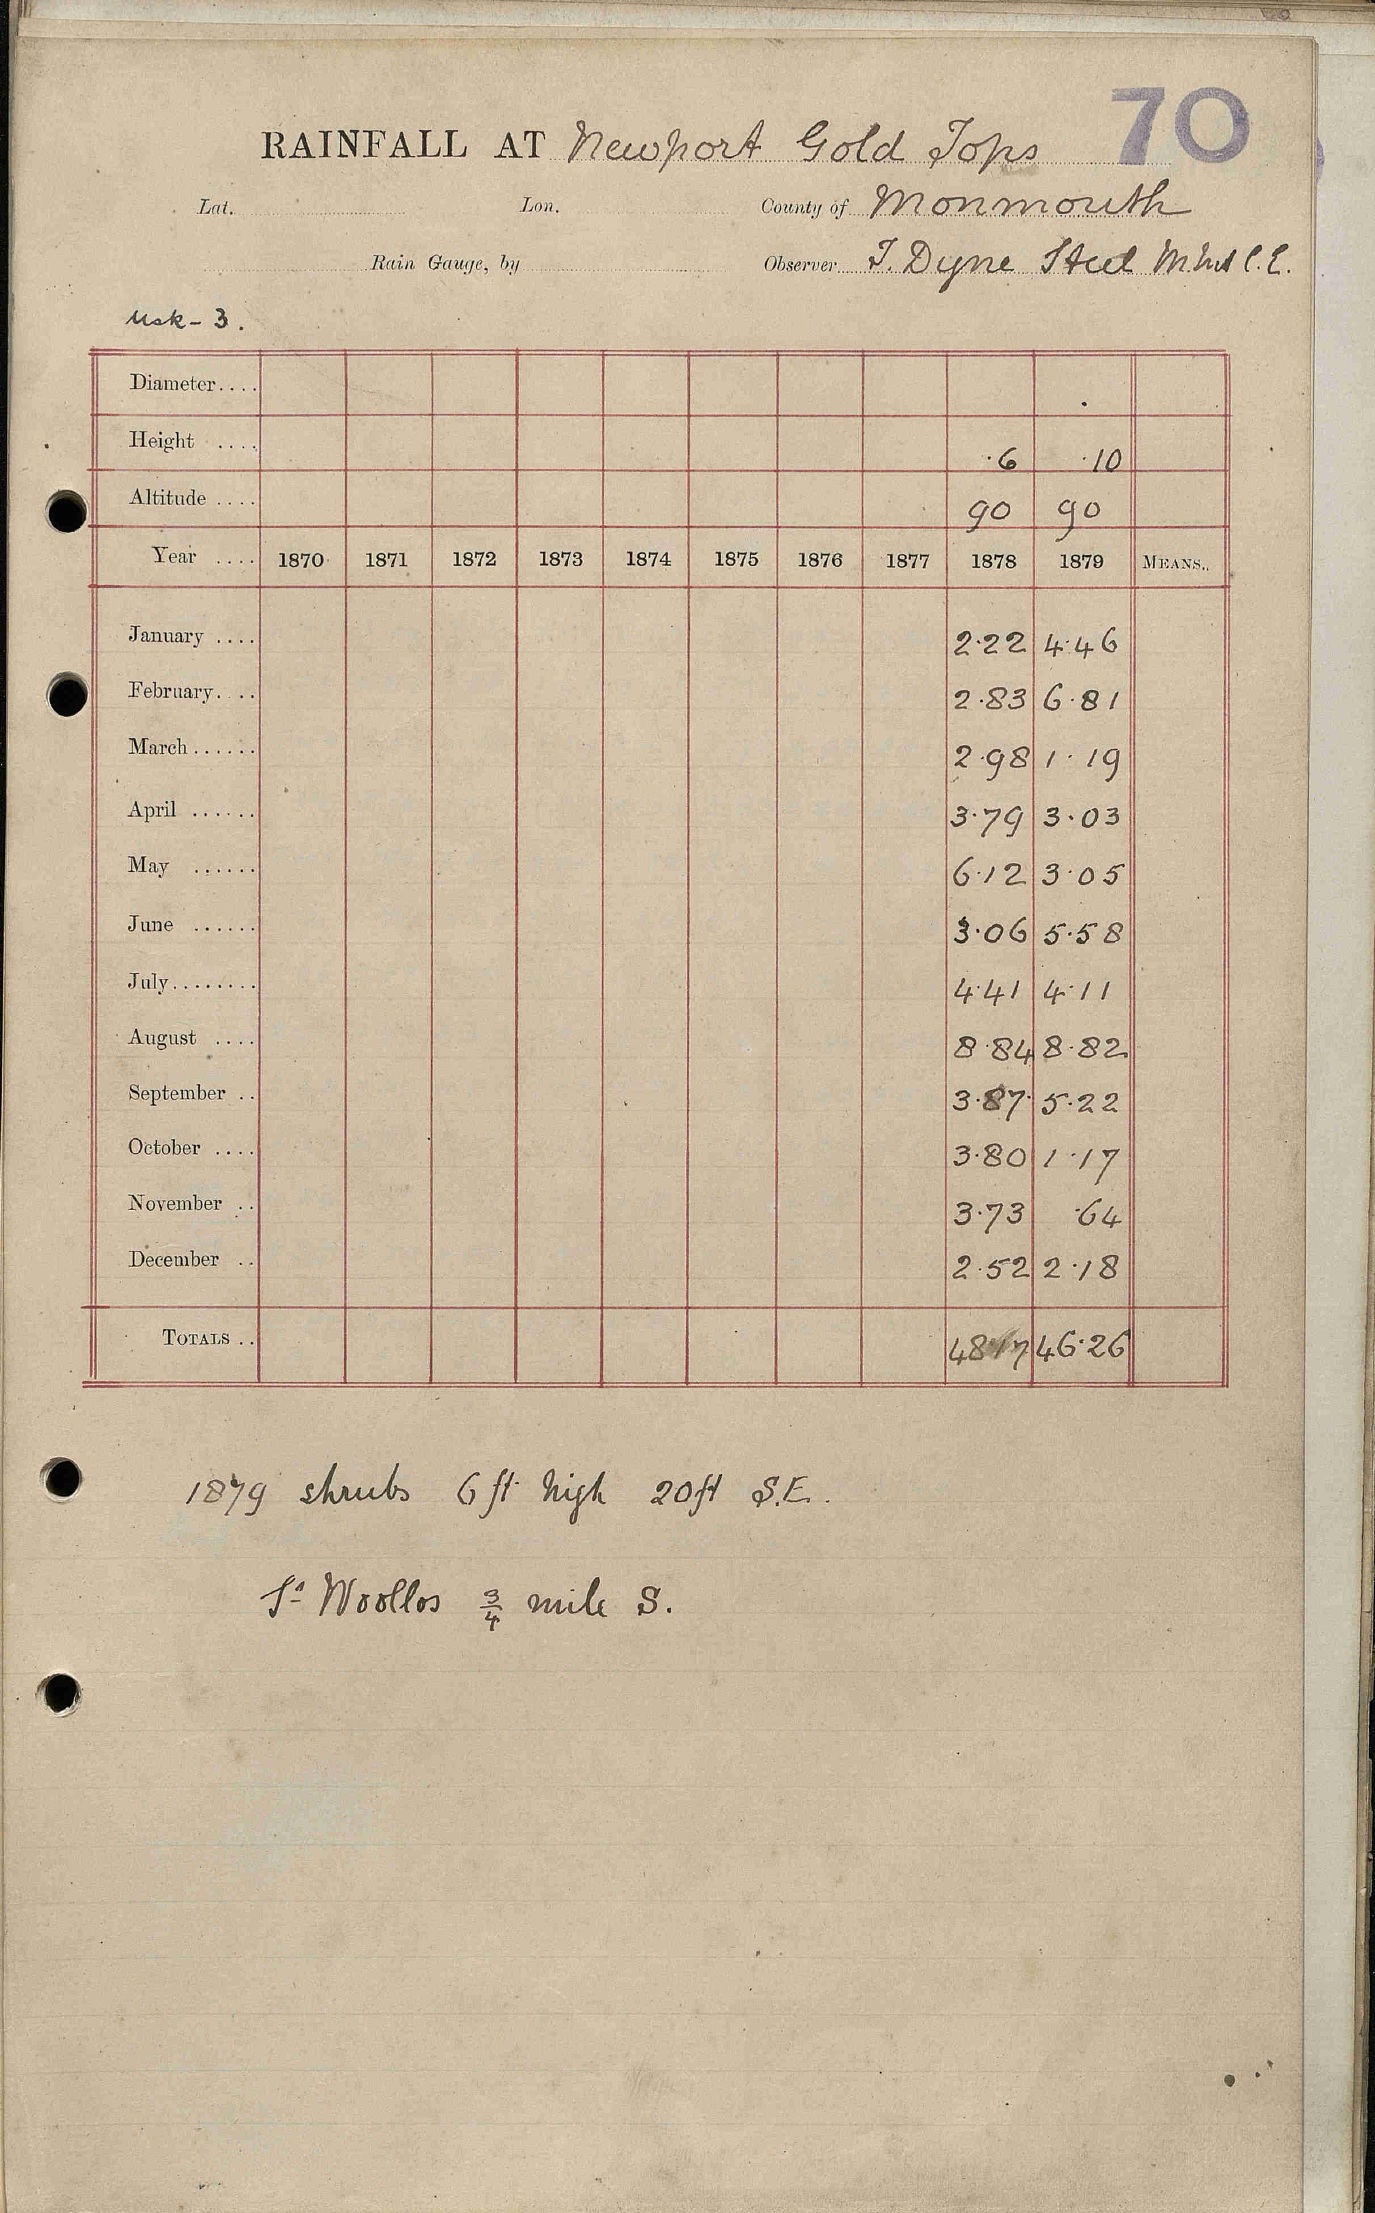 70
RAINFALL AT Newport Gold Tops
Lat. Lon. County of Monmouth
Rain Gauge, by Observer T. Dyne Steel M.Inst C.E.
Usk - 3.
Diameter....
Height .... ·6 ·10
Altitude .... 90 90
Year .... 1870 1871 1872 1873 1874 1875 1876 1877 1878 1879 MEANS..
January .... 2·22 4·46
February.... 2·83 6·81
March...... 2·98 1·19
April ...... 3·79 3·03
May ...... 6·12 3·05
June ...... 3·06 5·58
July........ 4·41 4·11
August .... 8·84 8·82
September .. 3·87 5·22
October .... 3·80 1·17
November .. 3·73 ·64
December .. 2·52 2·18
TOTALS .. 48·17 46·26
1879 shrubs 6 ft high 20ft S.E.
St Woollos 3/4 mile S.